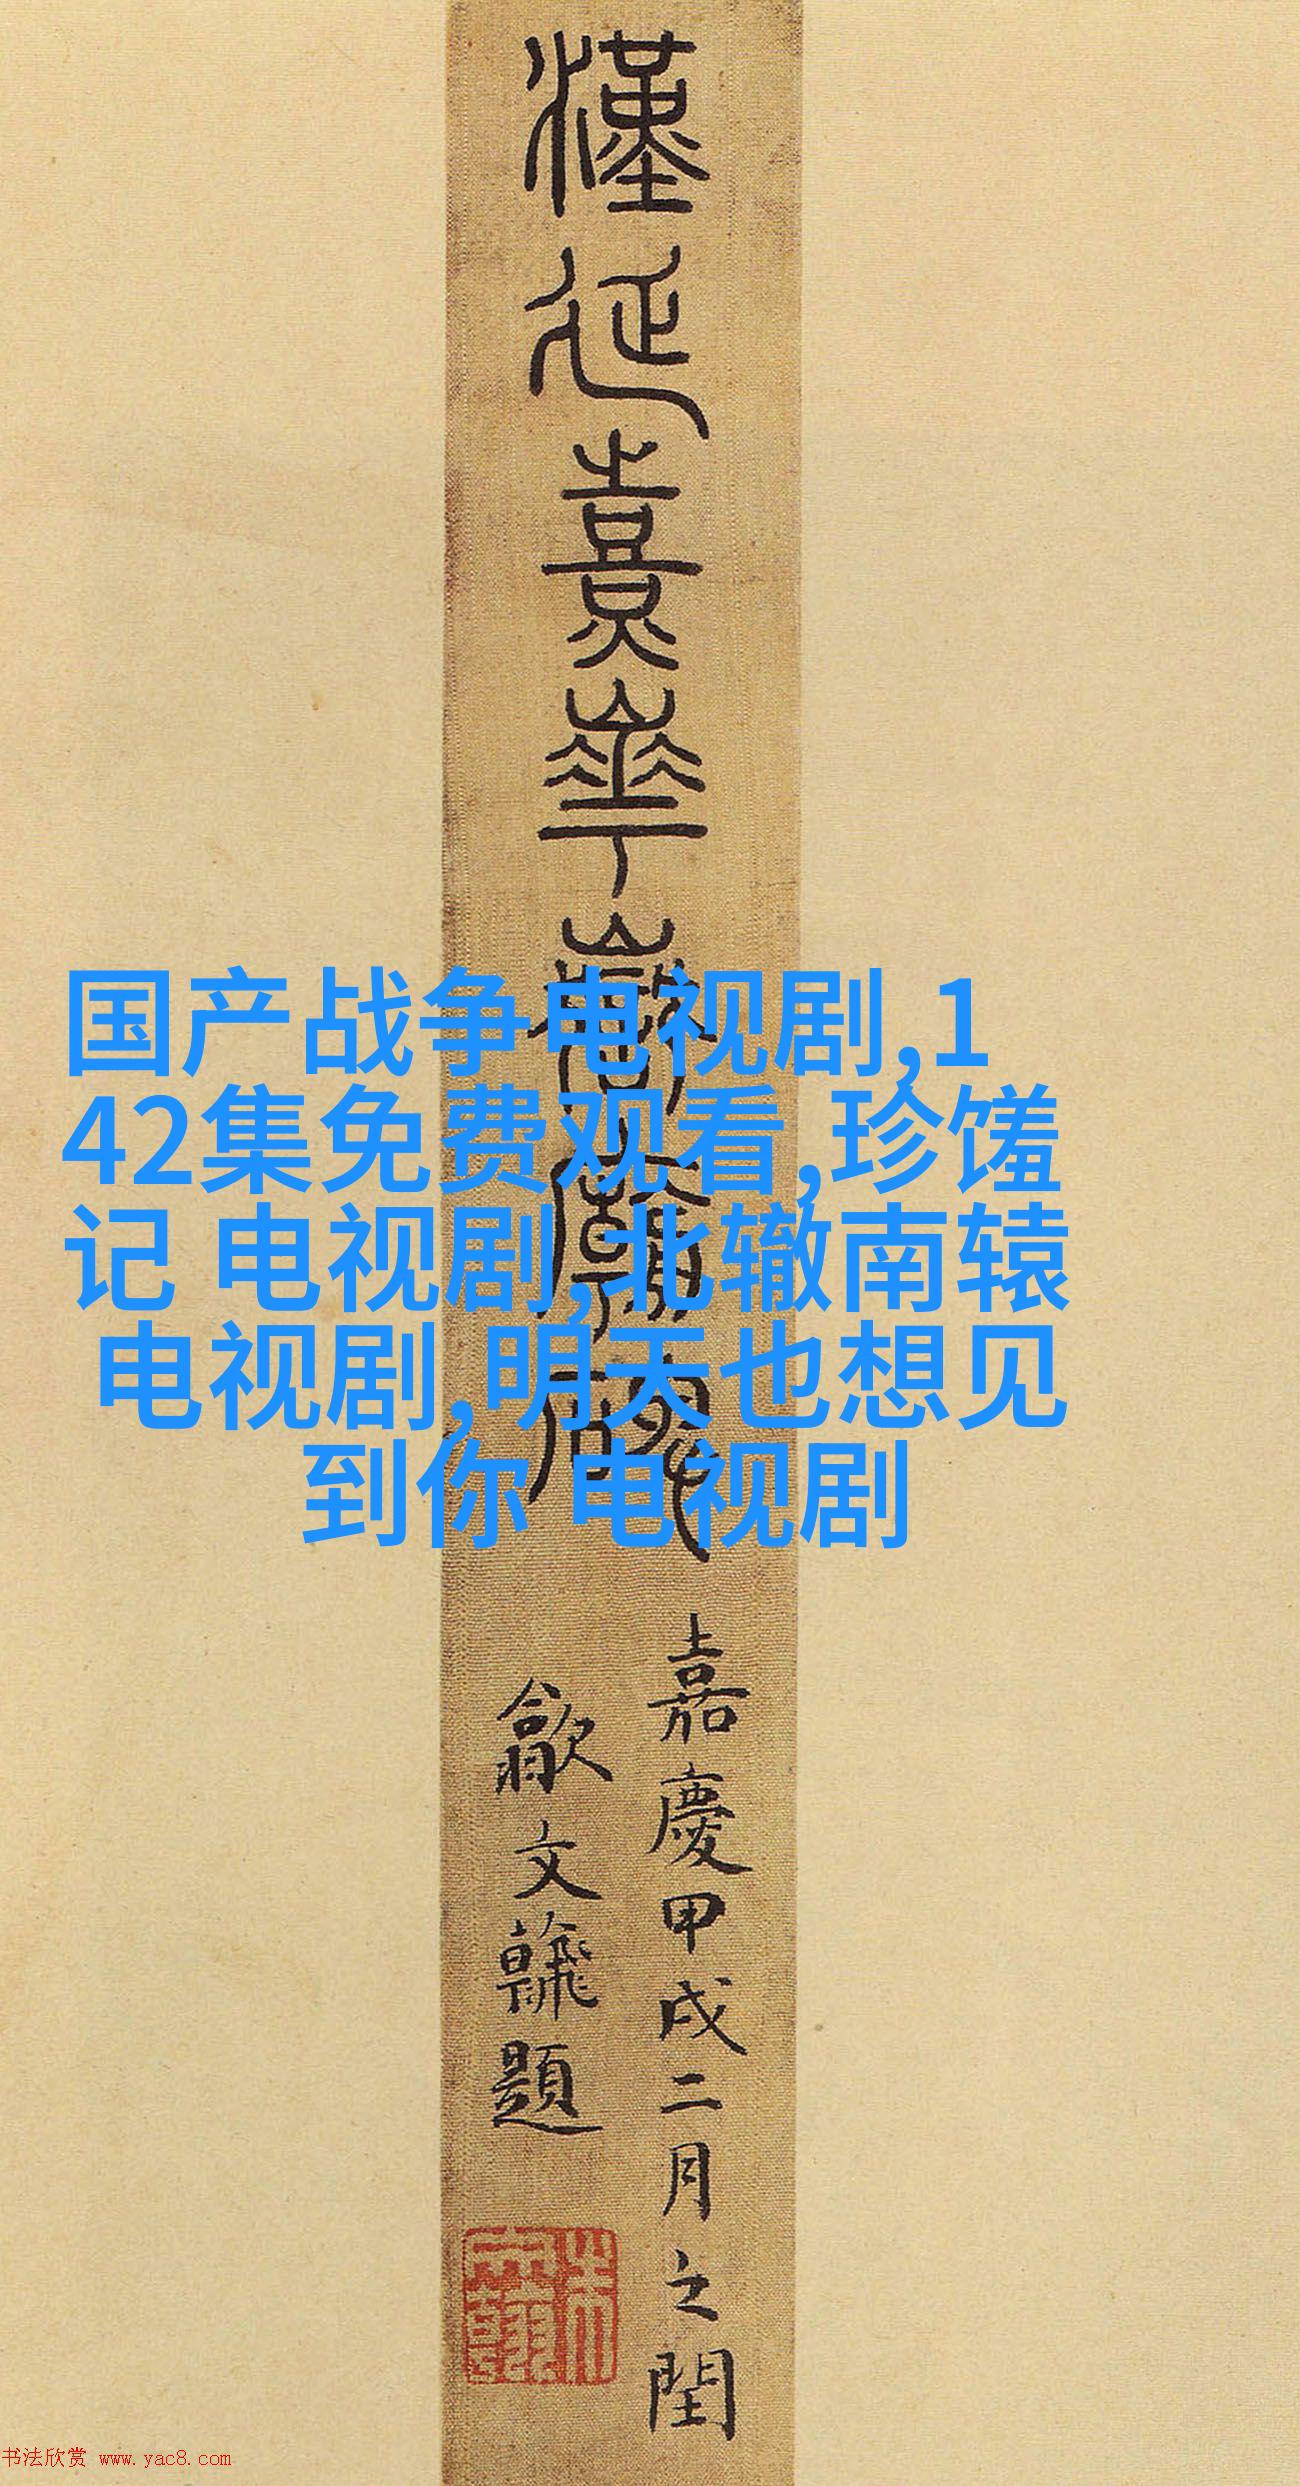 漢延熹華嶽廟碑
嘉慶甲戌二月之閏
歙文
題
国产战争电视剧,1
42集免费观看,珍馐
记 电视剧,北辙南辕
电视剧,明天也想见
到你 电视剧
书法欣赏 www.yac8.com